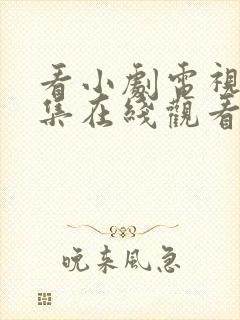 看小劇電視
集在綫觀看
晚来風急